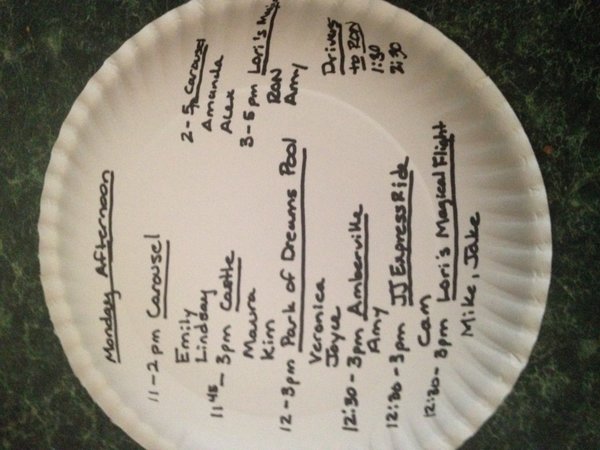 Monday Afternoon
11-2pm Carousel
Emily
Lindsay
11:45 - 3pm Castle
Maura
Kim
12-3pm Park of Dreams Pool
Veronica
Joyce
12:30-3pm Amberville
Amy
12:30-3pm JJ Express Ride
Cam
12:30-3pm Lori's Magical Flight
Mike, Jake
2-5p Carousel
Amanda
Alex
3-5pm Lori's
RON
Amy
Drivers
to RON
1:30
2:30